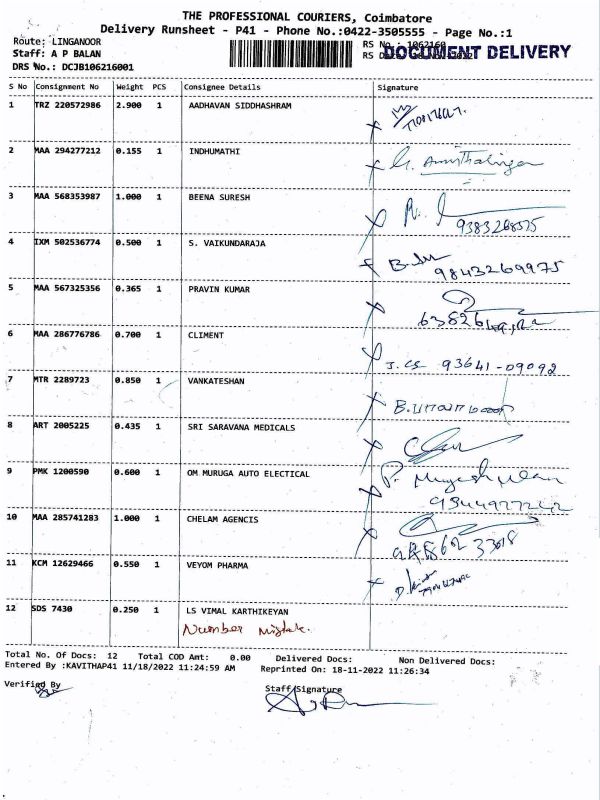 THE PROFESSIONAL COURIERS, Coimbatore
Delivery Runsheet - P41 - Phone No.:0422-3505555 - Page No.:1
Route: LINGANOOR
RS No.: 1062160
Staff: A P BALAN
DOCUMENT DELIVERY
DRS No.: DCJB106216001
S No Consignment No Weight PCS Consignee Details Signature
1 TRZ 220572986 2.900 1 AADHAVAN SIDDHASHRAM
2 MAA 294277212 0.155 1 INDHUMATHI
3 MAA 568353987 1.000 1 BEENA SURESH
9383268575
4 IXM 502536774 0.500 1 S. VAIKUNDARAJA
9843269975
5 MAA 567325356 0.365 1 PRAVIN KUMAR
6 MAA 286776786 0.700 1 CLIMENT
93641-09092
7 MTR 2289723 0.850 1 VANKATESHAN
8 ART 2005225 0.435 1 SRI SARAVANA MEDICALS
9 PMK 1200590 0.600 1 OM MURUGA AUTO ELECTICAL
10 MAA 285741283 1.000 1 CHELAM AGENCIS
11 KCM 12629466 0.550 1 VEYOM PHARMA
12 SDS 7430 0.250 1 LS VIMAL KARTHIKEYAN
Number Mistake.
Total No. Of Docs: 12 Total COD Amt: 0.00 Delivered Docs: Non Delivered Docs:
Entered By :KAVITHAP41 11/18/2022 11:24:59 AM Reprinted On: 18-11-2022 11:26:34
Verified By Staff Signature